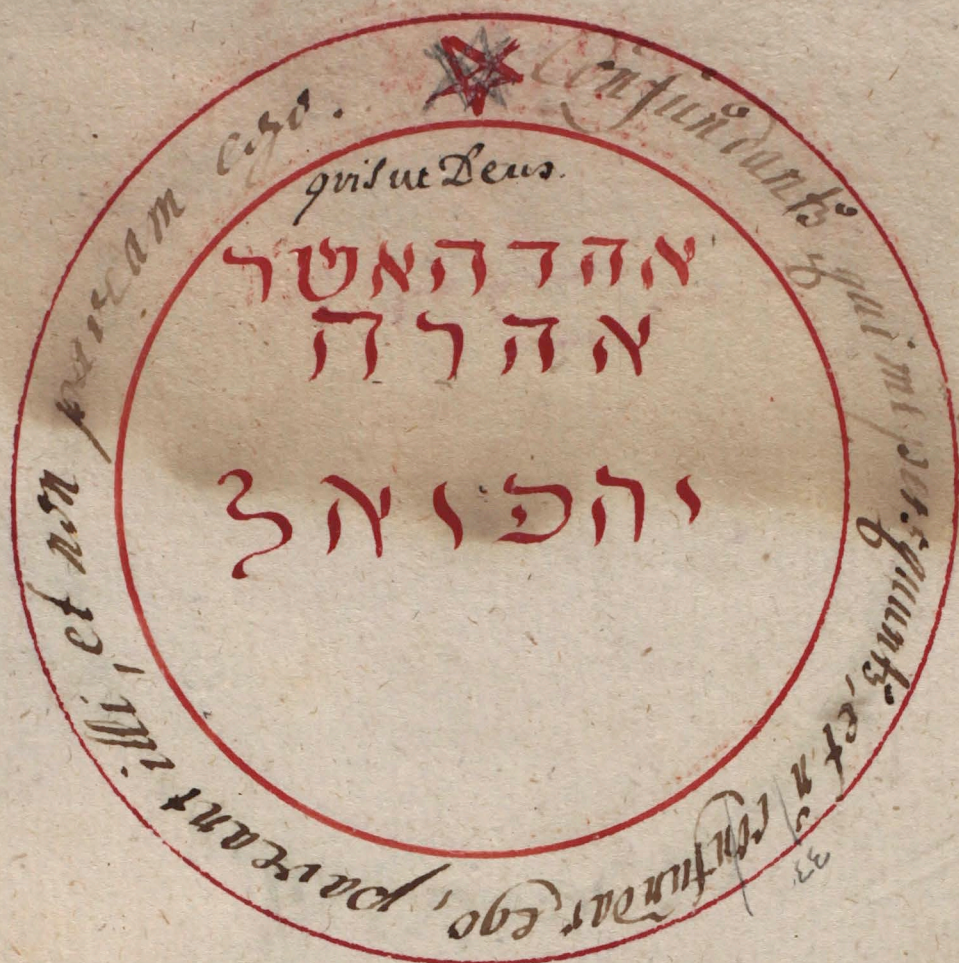 Confundantꝫ qui me persequuntꝫ, et ñ confundar ego, paveant illi, et non paveam ego.
qvis ut Deus.
אהד האשר
אהרה
יהפואל
33